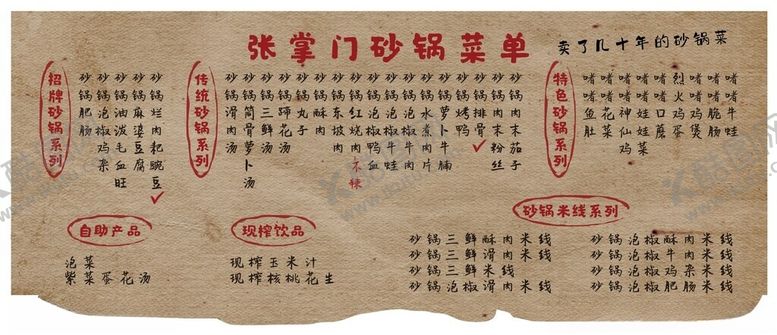 张掌门砂锅菜单
卖了几十年的砂锅菜
招牌砂锅系列
砂锅肥肠
砂锅泡椒鸡杂
砂锅油泼毛血旺
砂锅麻婆豆腐
砂锅烂肉粑豌豆
传统砂锅系列
砂锅滑肉汤
砂锅筒骨萝卜汤
砂锅三鲜汤
砂锅蹄花汤
砂锅丸子
砂锅酥肉
砂锅东坡肉
砂锅红烧肉 不辣
砂锅泡椒鸭血
砂锅泡椒牛蛙
砂锅水煮肉片
砂锅萝卜牛腩
砂锅烤鸭
砂锅排骨
砂锅肉末粉丝
砂锅肉末茄子
特色砂锅系列
啫啫鱼肚
啫啫花菜
啫啫神仙鸡
啫啫娃娃菜
啫啫口蘑
烈火鸡蛋
啫啫鸡煲
啫啫脆肠
啫啫牛蛙
自助产品
泡菜
紫菜蛋花汤
现榨饮品
现榨玉米汁
现榨核桃花生
砂锅米线系列
砂锅三鲜酥肉米线
砂锅三鲜滑肉米线
砂锅三鲜米线
砂锅泡椒滑肉米线
砂锅泡椒酥肉米线
砂锅泡椒牛肉米线
砂锅泡椒鸡杂米线
砂锅泡椒肥肠米线